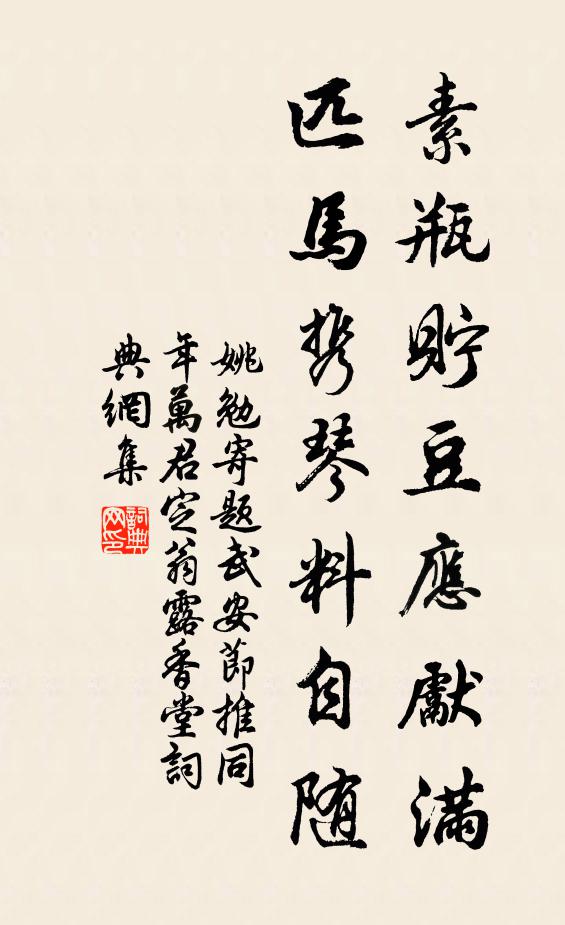 素瓶貯豆應獻滿
匹馬携琴料自随
姚勉寄題武安節推同
年萬君定翁露香堂詞
典網集
詞典网印